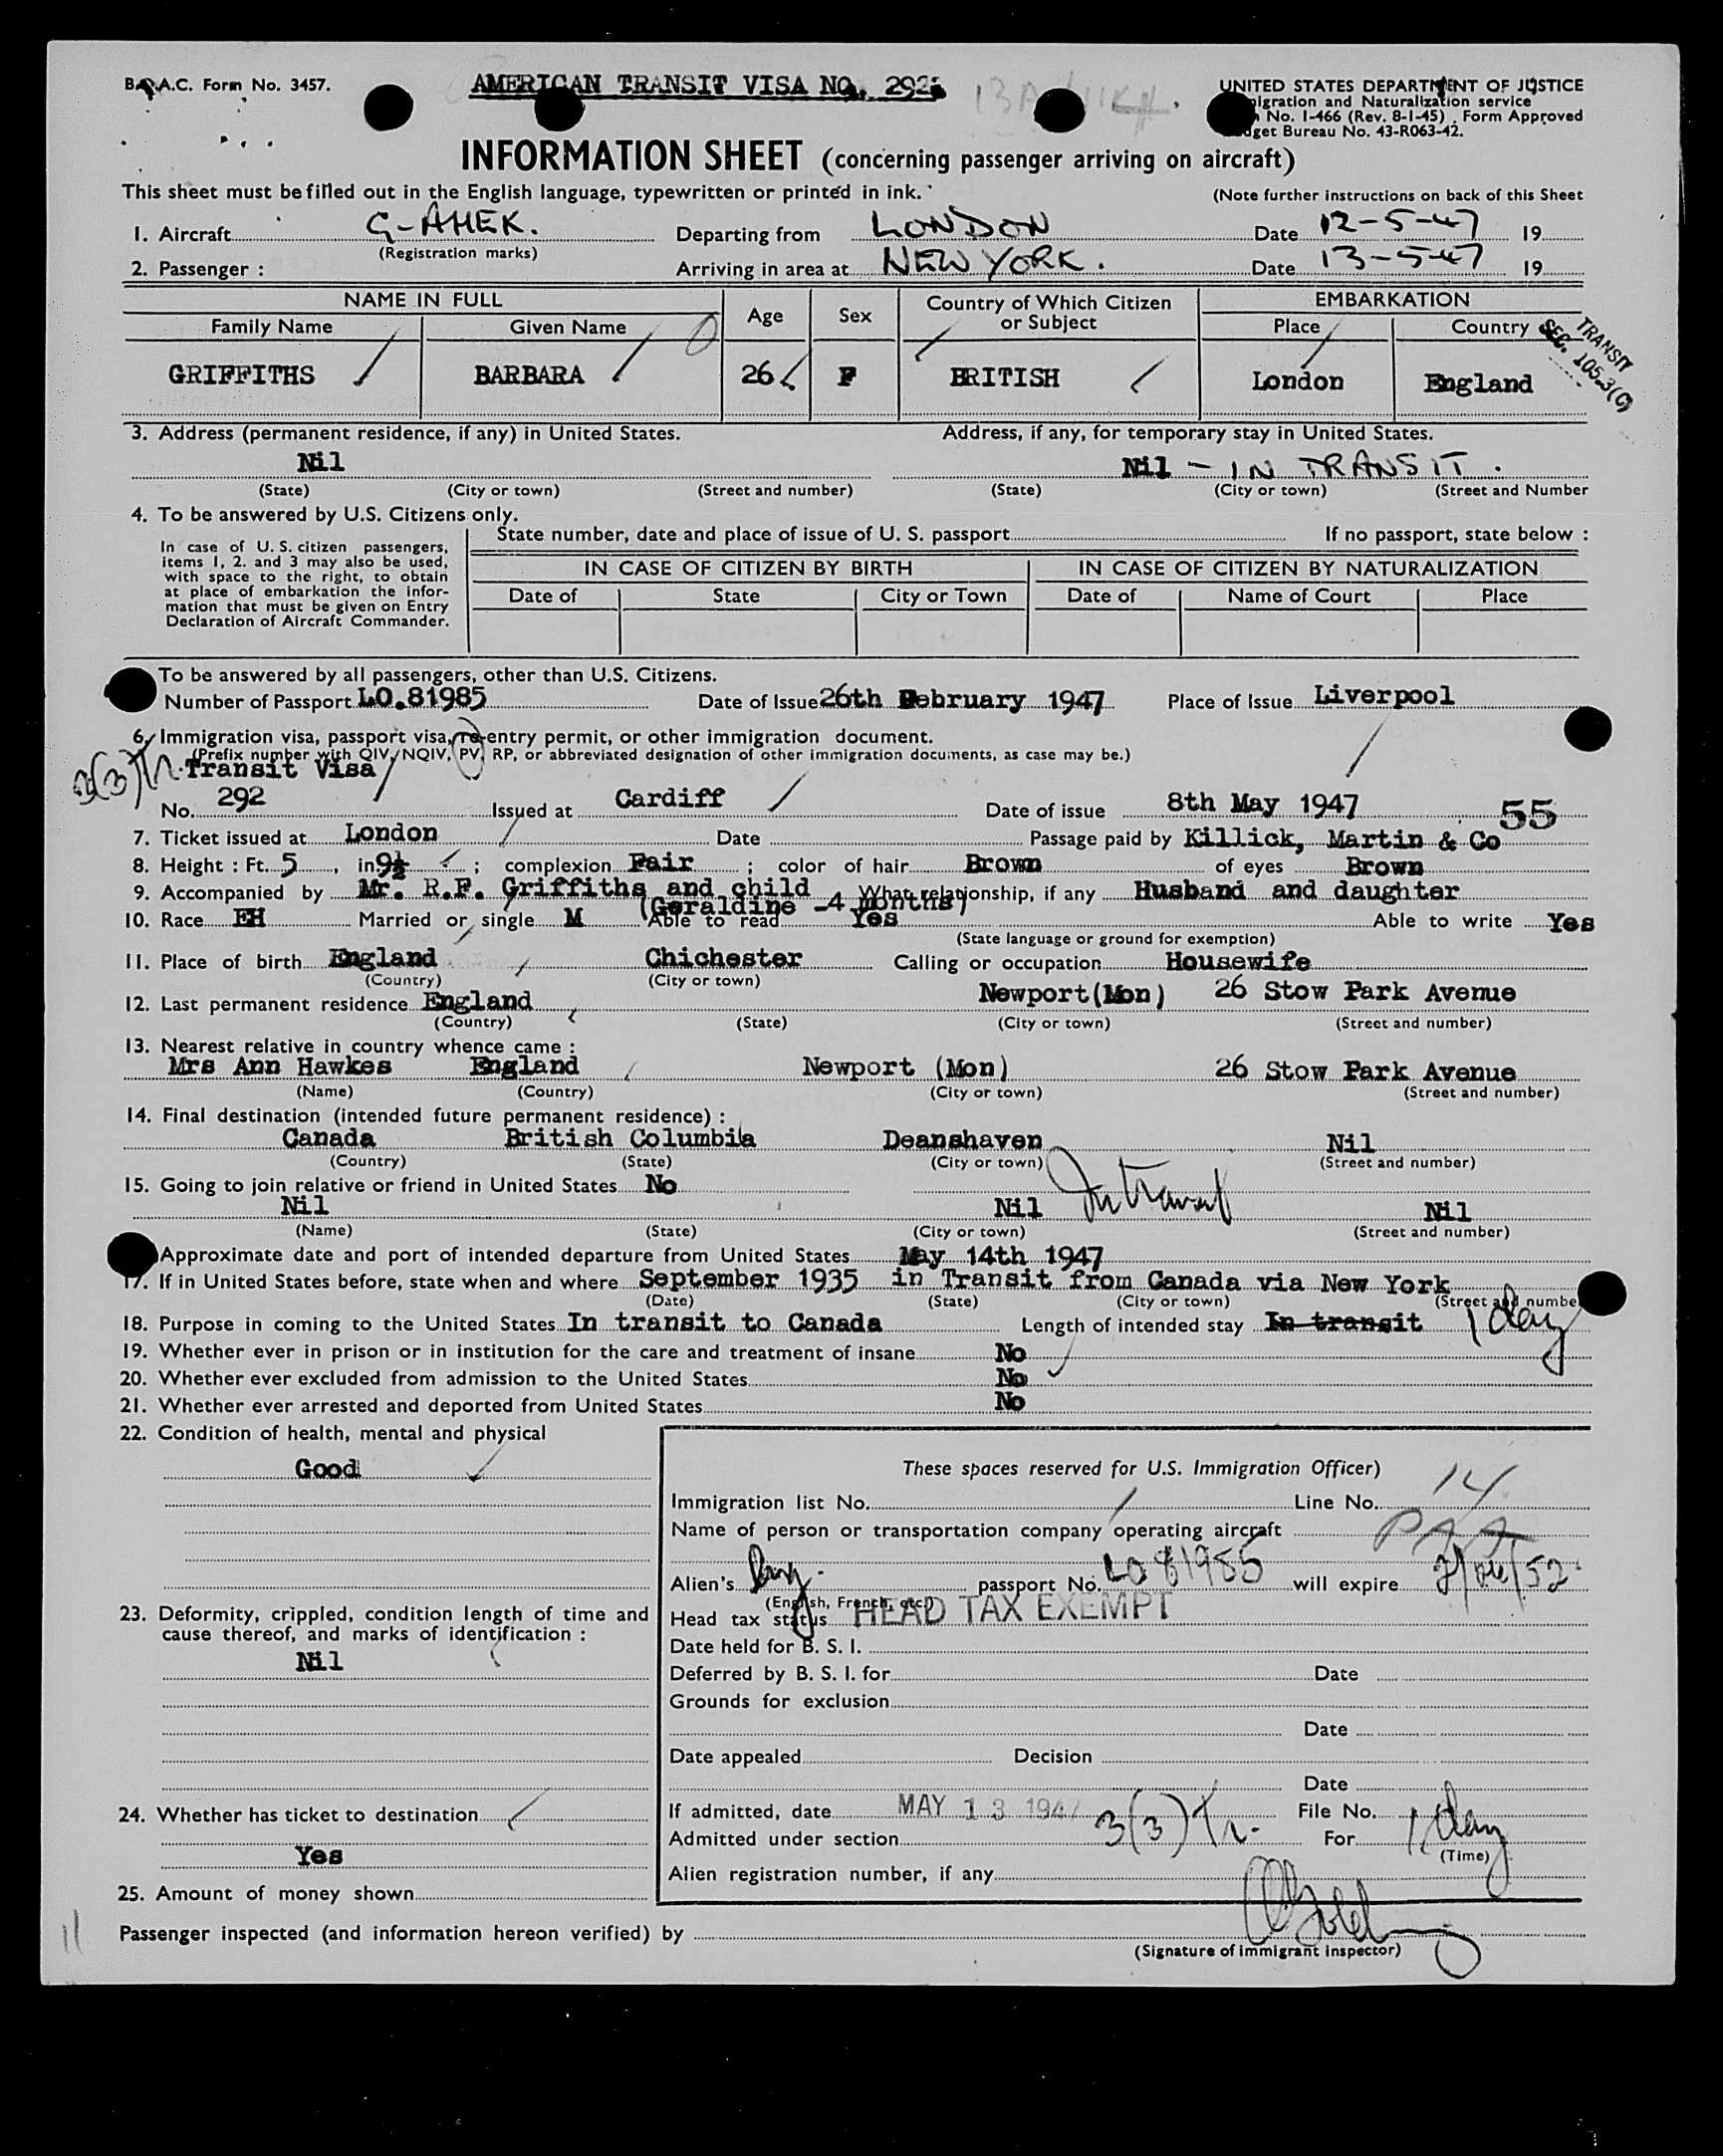 B.O.A.C. Form No. 3457.
AMERICAN TRANSIT VISA NO. 292
UNITED STATES DEPARTMENT OF JUSTICE
igration and Naturalization service
No. I-466 (Rev. 8-1-45) Form Approved
get Bureau No. 43-R063-42.
INFORMATION SHEET (concerning passenger arriving on aircraft)
This sheet must be filled out in the English language, typewritten or printed in ink.
(Note further instructions on back of this Sheet
1. Aircraft G-AHEK. Departing from LONDON Date 12-5-47 19
(Registration marks)
2. Passenger : Arriving in area at NEW YORK. Date 13-5-47 19
NAME IN FULL Age Sex Country of Which Citizen or Subject EMBARKATION
Family Name Given Name Place Country
TRANSIT
SEC. 105.3(C)
GRIFFITHS BARBARA 26 F BRITISH London England
3. Address (permanent residence, if any) in United States. Address, if any, for temporary stay in United States.
Nil Nil - IN TRANSIT.
(State) (City or town) (Street and number) (State) (City or town) (Street and Number
4. To be answered by U.S. Citizens only.
State number, date and place of issue of U. S. passport If no passport, state below :
In case of U. S. citizen passengers,
items 1, 2. and 3 may also be used,
with space to the right, to obtain
at place of embarkation the infor-
mation that must be given on Entry
Declaration of Aircraft Commander.
IN CASE OF CITIZEN BY BIRTH IN CASE OF CITIZEN BY NATURALIZATION
Date of State City or Town Date of Name of Court Place
To be answered by all passengers, other than U.S. Citizens.
Number of Passport LO.81985 Date of Issue 26th February 1947 Place of Issue Liverpool
6. Immigration visa, passport visa, re-entry permit, or other immigration document.
(Prefix number with QIV, NQIV, PV, RP, or abbreviated designation of other immigration documents, as case may be.)
3(3)Tr. Transit Visa
No. 292 Issued at Cardiff Date of issue 8th May 1947 55
7. Ticket issued at London Date Passage paid by Killick, Martin & Co
8. Height : Ft. 5, in. 9½ ; complexion Fair ; color of hair Brown of eyes Brown
9. Accompanied by Mr. R.F. Griffiths and child What relationship, if any Husband and daughter
(Geraldine -4 months)
10. Race EH Married or single M Able to read Yes Able to write Yes
(State language or ground for exemption)
11. Place of birth England Chichester Calling or occupation Housewife
(Country) (City or town)
12. Last permanent residence England Newport(Mon) 26 Stow Park Avenue
(Country) (State) (City or town) (Street and number)
13. Nearest relative in country whence came :
Mrs Ann Hawkes England Newport (Mon) 26 Stow Park Avenue
(Name) (Country) (City or town) (Street and number)
14. Final destination (intended future permanent residence) :
Canada British Columbia Deanshaven Nil
(Country) (State) (City or town) (Street and number)
15. Going to join relative or friend in United States No
Nil Nil In transit Nil
(Name) (State) (City or town) (Street and number)
Approximate date and port of intended departure from United States May 14th 1947
17. If in United States before, state when and where September 1935 in Transit from Canada via New York
(Date) (State) (City or town) (Street and numbe
18. Purpose in coming to the United States In transit to Canada Length of intended stay In transit 1 day
19. Whether ever in prison or in institution for the care and treatment of insane No
20. Whether ever excluded from admission to the United States No
21. Whether ever arrested and deported from United States No
22. Condition of health, mental and physical
Good
These spaces reserved for U.S. Immigration Officer)
Immigration list No. Line No. 14
Name of person or transportation company operating aircraft PAA
Alien's Eng. passport No. LO 81985 will expire
(English, French, etc.)
Head tax status HEAD TAX EXEMPT
23. Deformity, crippled, condition length of time and
cause thereof, and marks of identification :
Nil
Date held for B. S. I.
Deferred by B. S. I. for Date
Grounds for exclusion
Date
Date appealed Decision
Date
24. Whether has ticket to destination
Yes
If admitted, date MAY 13 1947 File No.
Admitted under section 3(3) Tr. For 1 day
(Time)
Alien registration number, if any
25. Amount of money shown
11
Passenger inspected (and information hereon verified) by
(Signature of immigrant inspector)